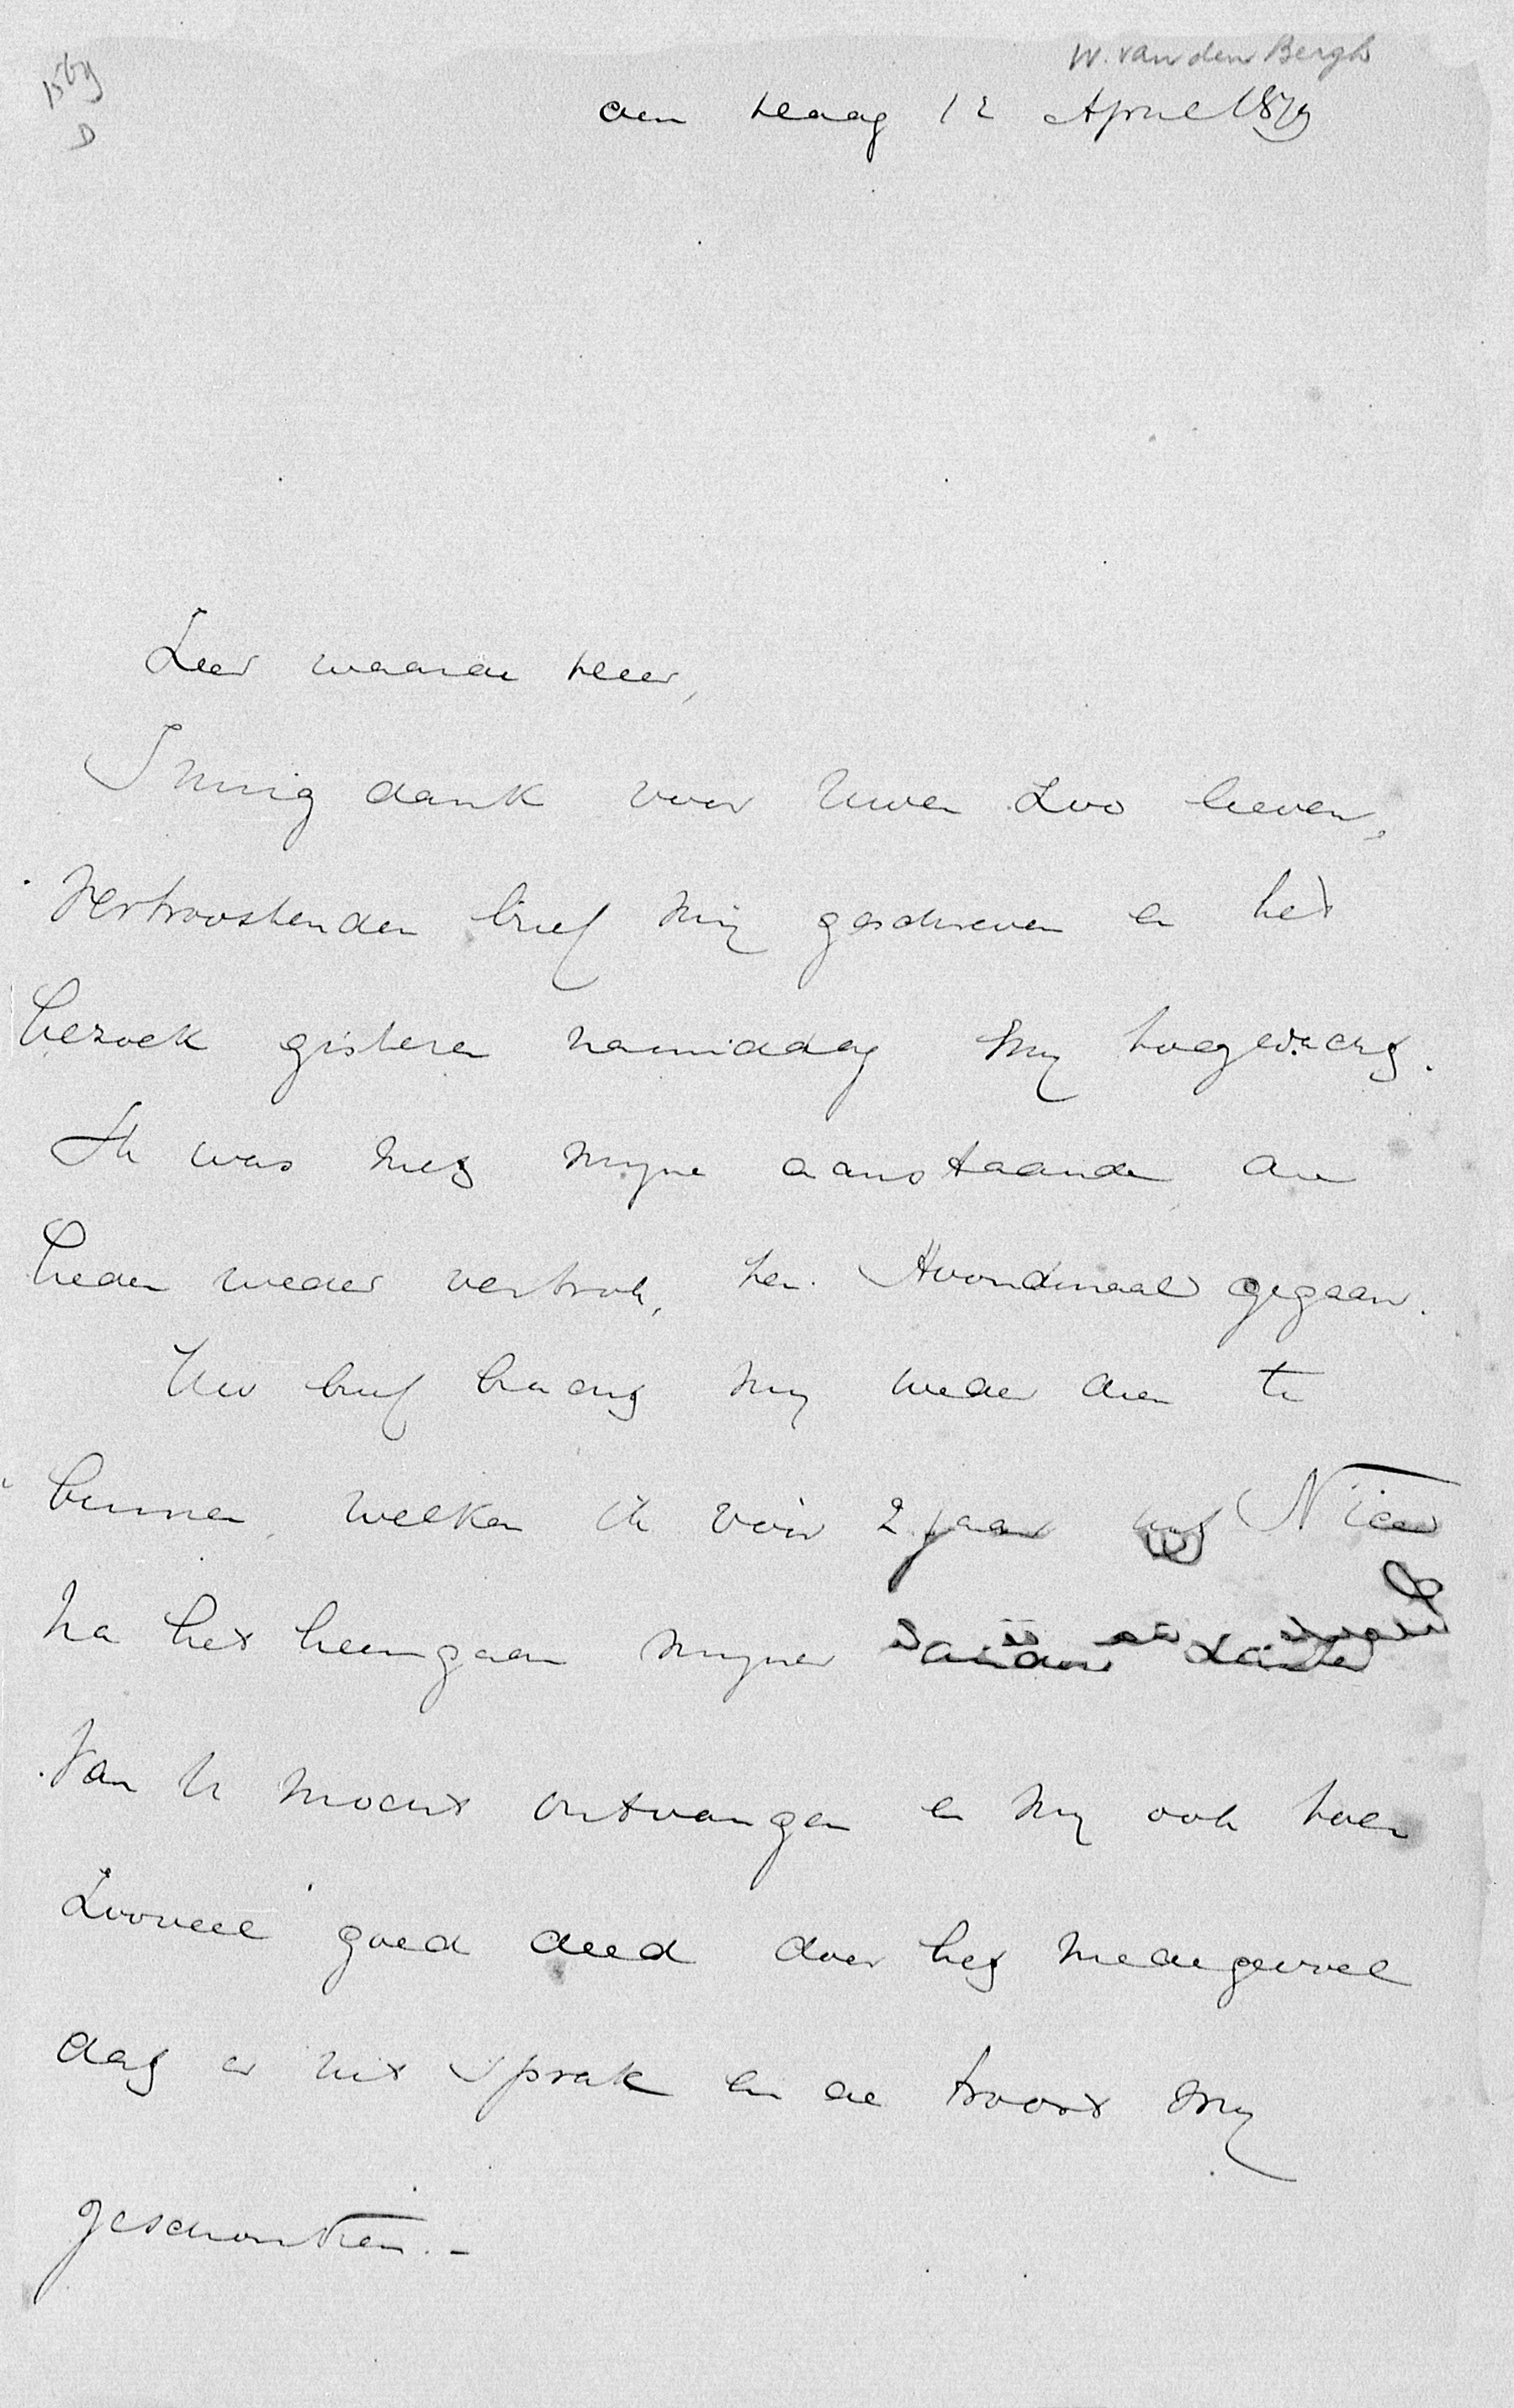 W. van den Bergh
1569
D
den Haag 12 April 1879
Zeer waarde Heer,
Innig dank voor Uwen zoo lieven,
vertroostenden brief mij geschreven en het
bezoek gisteren namiddag mij toegebragt.
Ik was met mijne aanstaande die
heden weder vertrok, ten Avondmaal gegaan.
Uw brief bragt mij weder dien te
binnen, welken ik vóór 2 jaar uit Nice
na het heengaan mijner
van U mocht ontvangen en mij ook toen
zooveel goed deed door het medegevoel
dat er uit sprak en de troost mij
geschonken. -